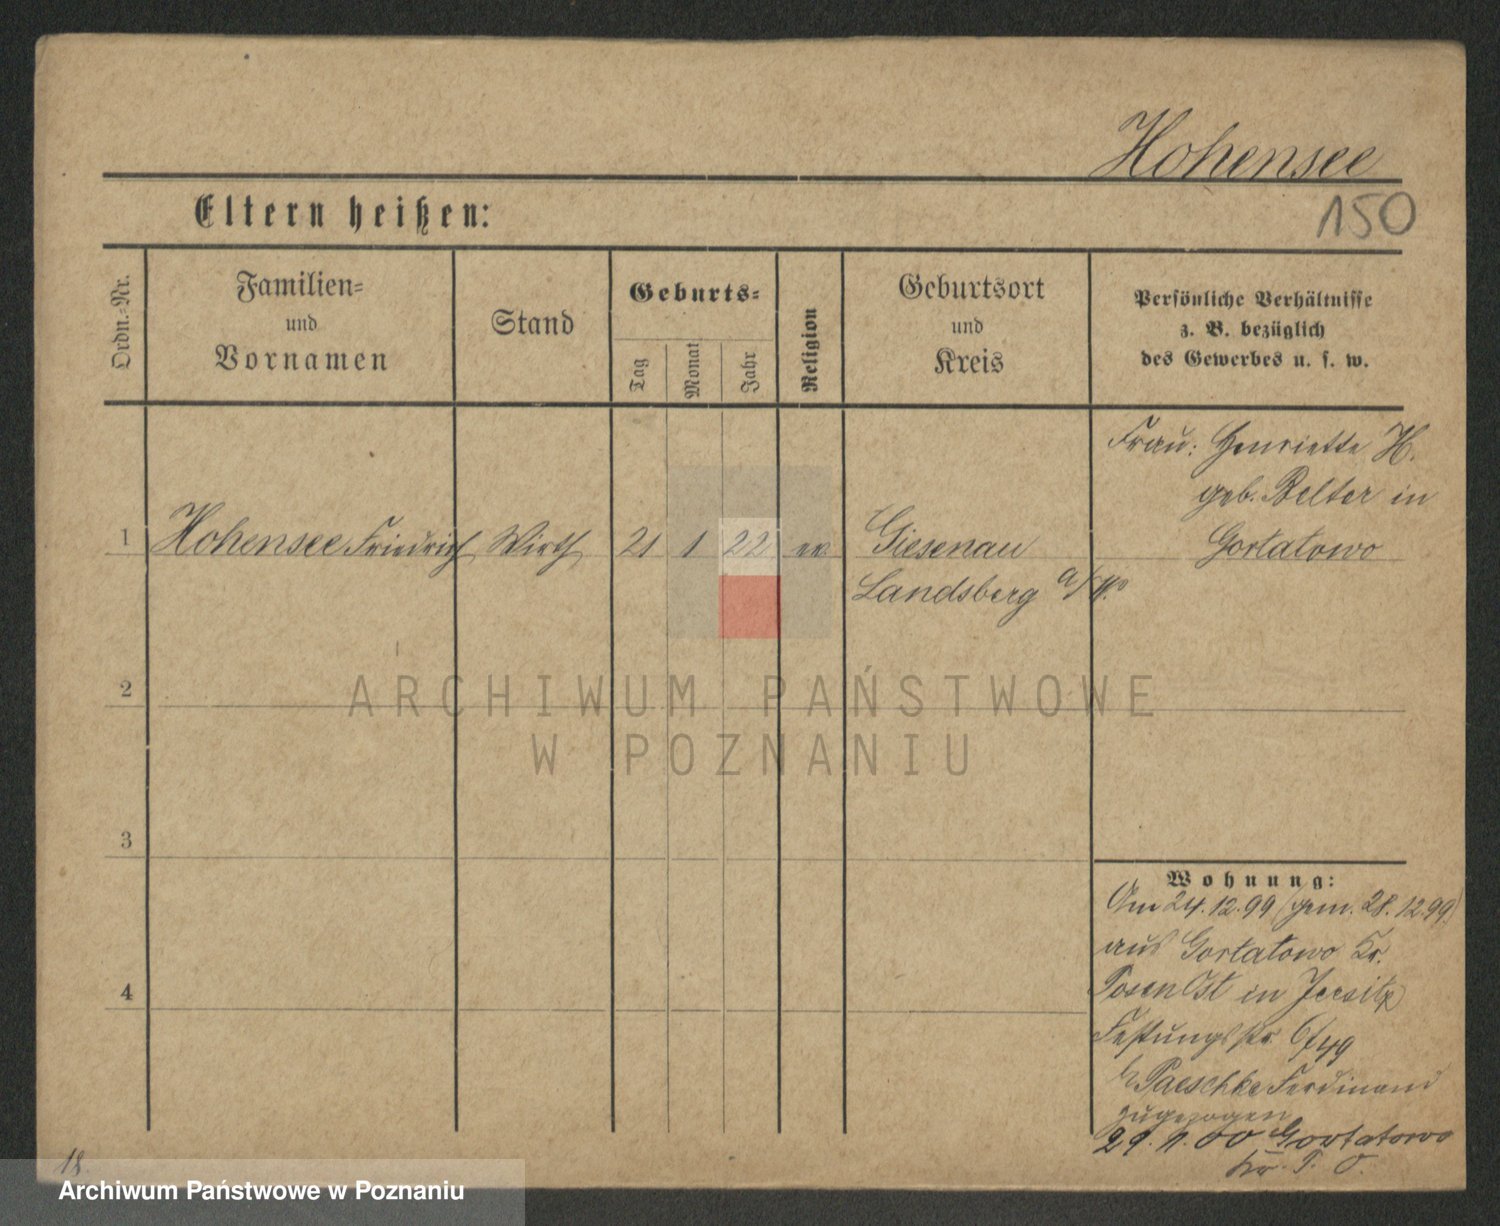 Hohensee
150
Eltern heißen:
Ordn.-Nr.
Familien-
und
Vornamen
Stand
Geburts-
Tag
Monat
Jahr
Religion
Geburtsort
und
Kreis
Persönliche Verhältnisse
z. B. bezüglich
des Gewerbes u. s. w.
Frau: Henriette H.
geb. Belter in
Gortatowo
1 Hohensee Friedrich Wirth 21 1 22 ev Giesenau
Landsberg a/W.
2
3
4
ARCHIWUM PAŃSTWOWE
W POZNANIU
Wohnung:
Am 24.12.99 (gem. 28.12.99)
aus Gortatowo Kr.
Posen Ost in Jersitz
Festungsstr.
b Paeschke Ferdinand
zugezogen
Gortatowo
Kr. P. O.
18.
Archiwum Państwowe w Poznaniu